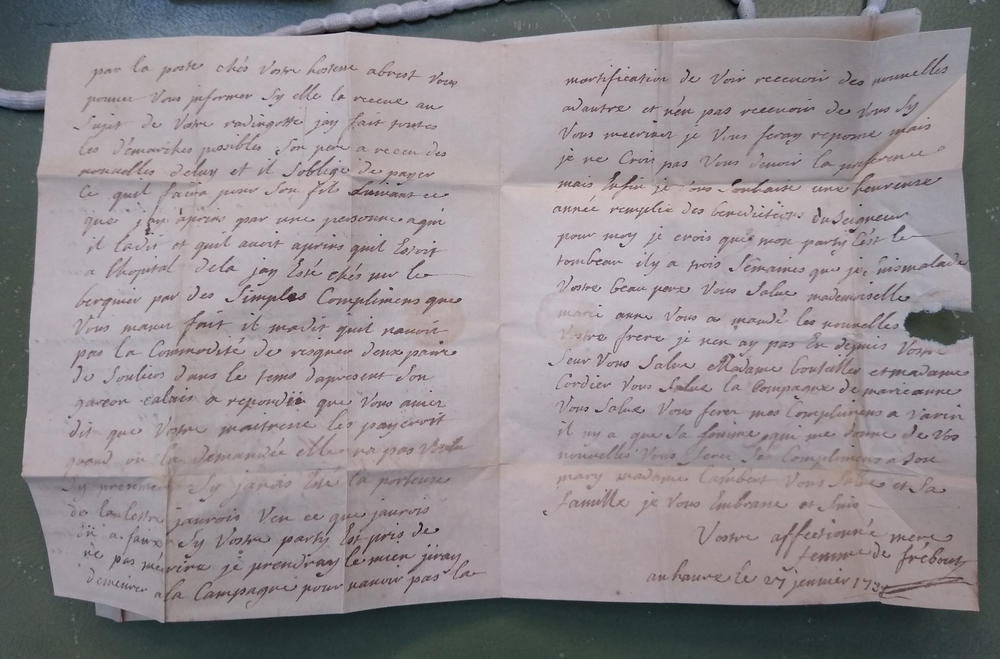 par la poste chés Vostre hostesse abrest vous
pouvez Vous informer Sy elle la receue au
Sujet de Votre radingotte jay fait toutes
les démarches possibles Son pere a receu des
nouvelles deluy et il Soblige de payer
ce quil faira pour Son fils Suivant ce
que jay apris par une personne aqui
il ladit et quil avoit apris quil Estoit
a lhopital dela jay Esté chés mr le
berquier par des Simples Complimens que
Vous mavez fait il madit quil navoit
pas la Commodité de risquer deux paire
de Souliers dans le tems dapresent Son
garcon calais a repondu que Vous aviez
dit que Vostre maitresse les payeroit
quand on la demandée elle na pas Voulu
Sy presenter Sy javais Esté la porteuse
de la lettre jaurois Veu ce que jaurois
a faux Sy Vostre party Est pris de
ne pas mécrire je prendray le mien jiray
demeurer ala Campagne pour navoir pas la
mortification de Voir recevoir des nouvelles
adautre et nen pas recevoir de Vous Sy
Vous mecrivez je Vous feray reponse mais
je ne Croi pas Vous devoir la preference
mais Enfin je Vous Souhaise une heureuse
année remplie des benedictions du Seigneur
pour moy je crois que mon party Cest le
tombeau ily a trois Semaines que je Suis malade
Vostre beau pere Vous Salue mademoiselle
marie anne Vous a mandé les nouvelles
Vostre frere je nen ay pas Eu depuis Vostre
Seur Vous Salue Madame bouteiller et madame
Cordier Vous Salue la Compagne de marieanne
Vous Salue Vous ferez mes Complimens a Varin
il ny a que Sa femme qui me donne de Vos
nouvelles Vous ferez Ses Complimens a Son
mary madame Lambert Vous Salue et Sa
famille je Vous Embrasse et Suis
Vostre affectionné mere
femme de frébourg
au havre le 27 jenvier 17